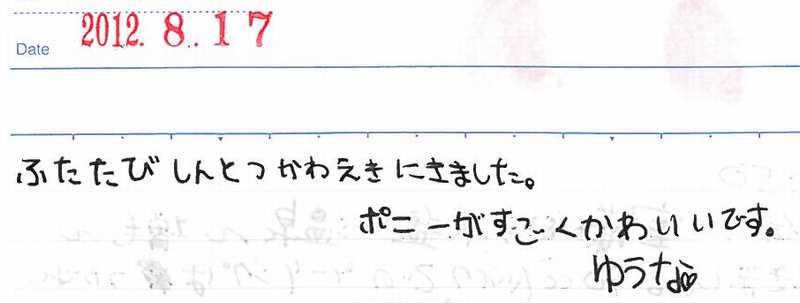 Date 2012.8.17
ふたたびしんとつかわえきにきました。
ポニーがすごくかわいいです。
ゆうな